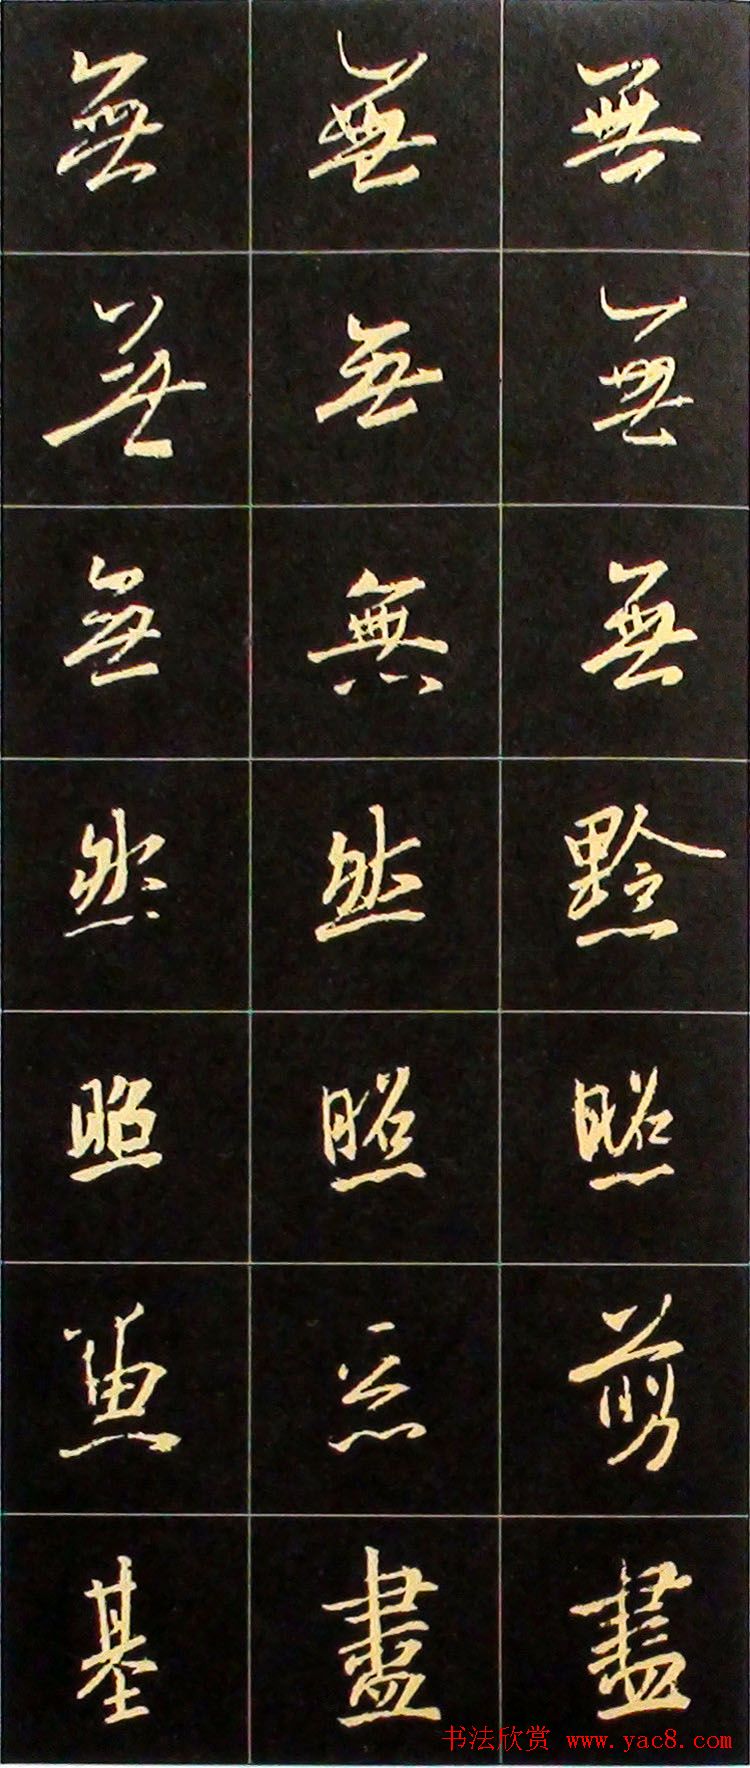 無無無
無無無
無無無
黔然然
照照照
剪
盡盡基
书法欣赏 www.yac8.com